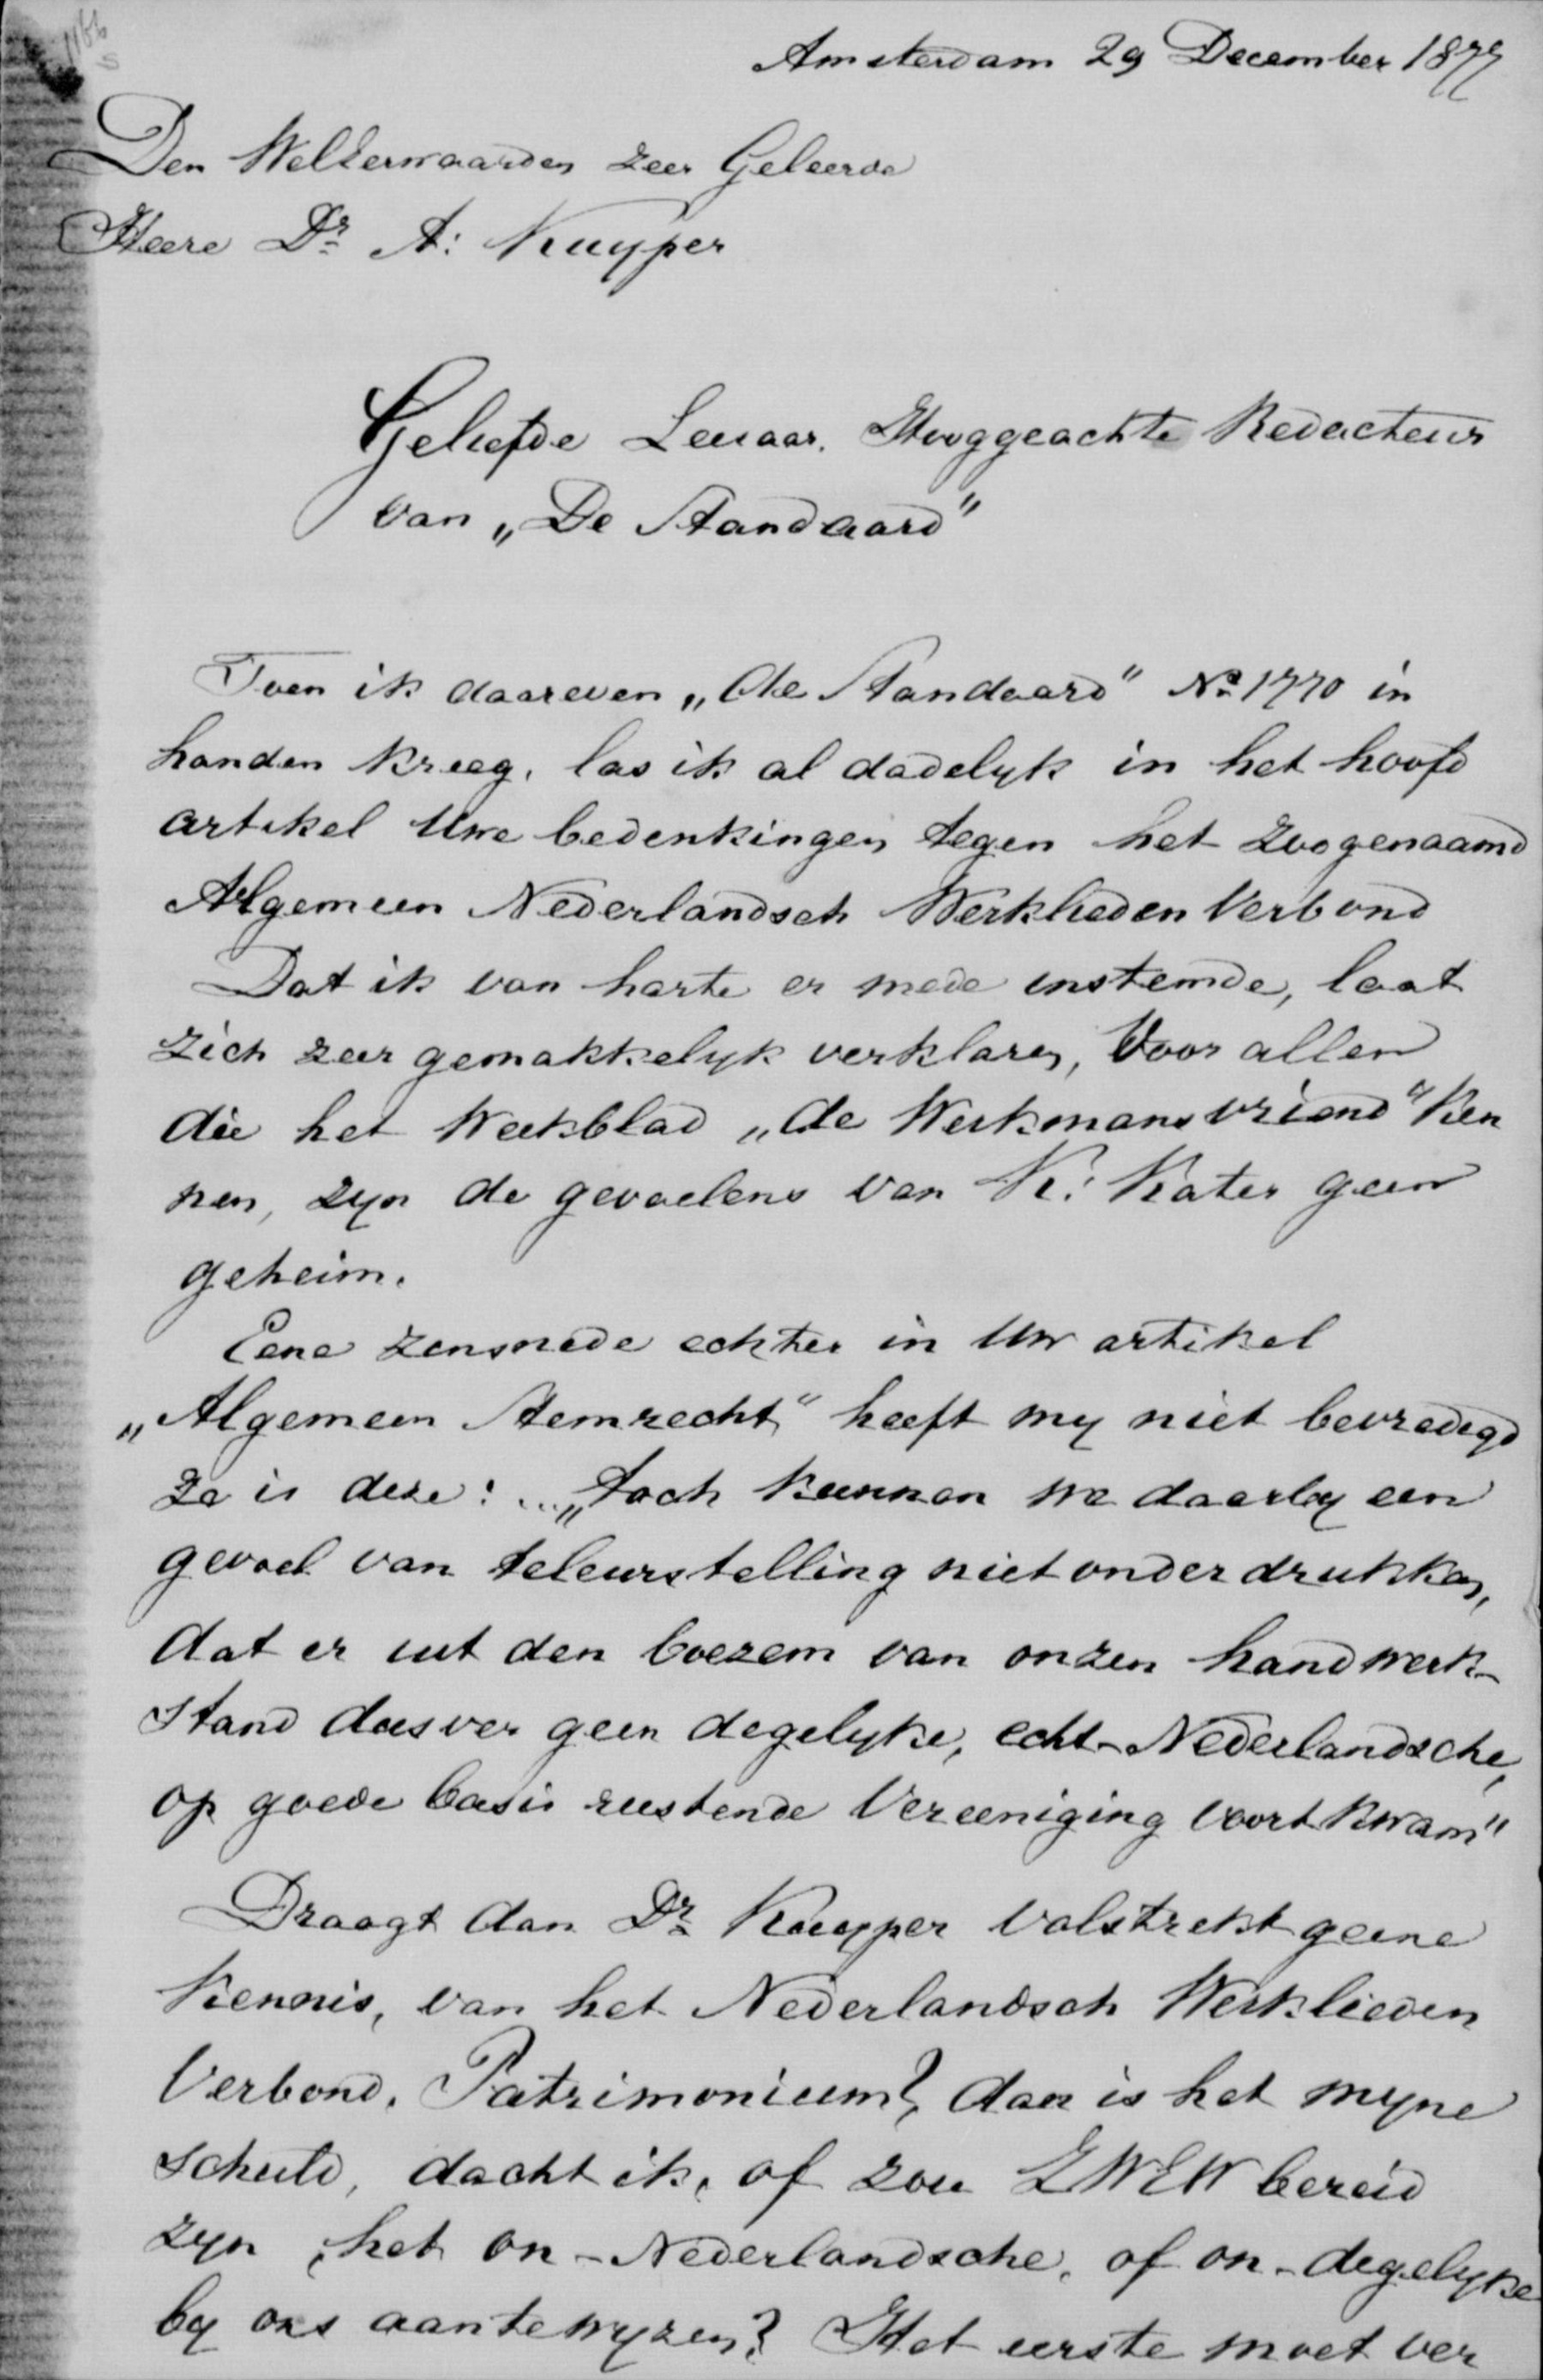 1166
s
Amsterdam 29 December 1877
Den WelEerwaarden zeer Geleerde
Heere Dr A: Kuyper
Geliefde Leeraar. Hooggeachte Redacteur
van „De Standaard"
Toen ik daareven „de Standaard" No 1770 in
handen kreeg, las ik al dadelyk in het hoofd
artikel Uwe bedenkingen tegen het zoogenaamd
Algemeen Nederlandsch Werklieden Verbond
Dat ik van harte er mede instemde, laat
zich zeer gemakkelyk verklaren, Voor allen
die het Weekblad „de Werkmansvriend" Ken
nen, zyn de gevoelens van K: Kater geen
geheim.
Eene zensnede echter in Uw artikel
„Algemeen Stemrecht" heeft my niet bevredigd
Ze is deze: ...„toch kunnen we daarby een
gevoel van teleurstelling niet onderdrukken,
dat er uit den boezem van onzen handwerk-
stand dusver geen degelyke, echt-Nederlandsche,
op goede basis rustende Vereeniging voortkwam"
Draagt dan Dr Kuyper volstrekt geene
Kennis, van het Nederlandsch Werklieden
Verbond, Patrimonium? dan is het myne
schuld, dacht ik, of zou ZWEW bereid
zyn, het on-Nederlandsche, of on-degelyke
by ons aantewyzen? Het eerste moet ver